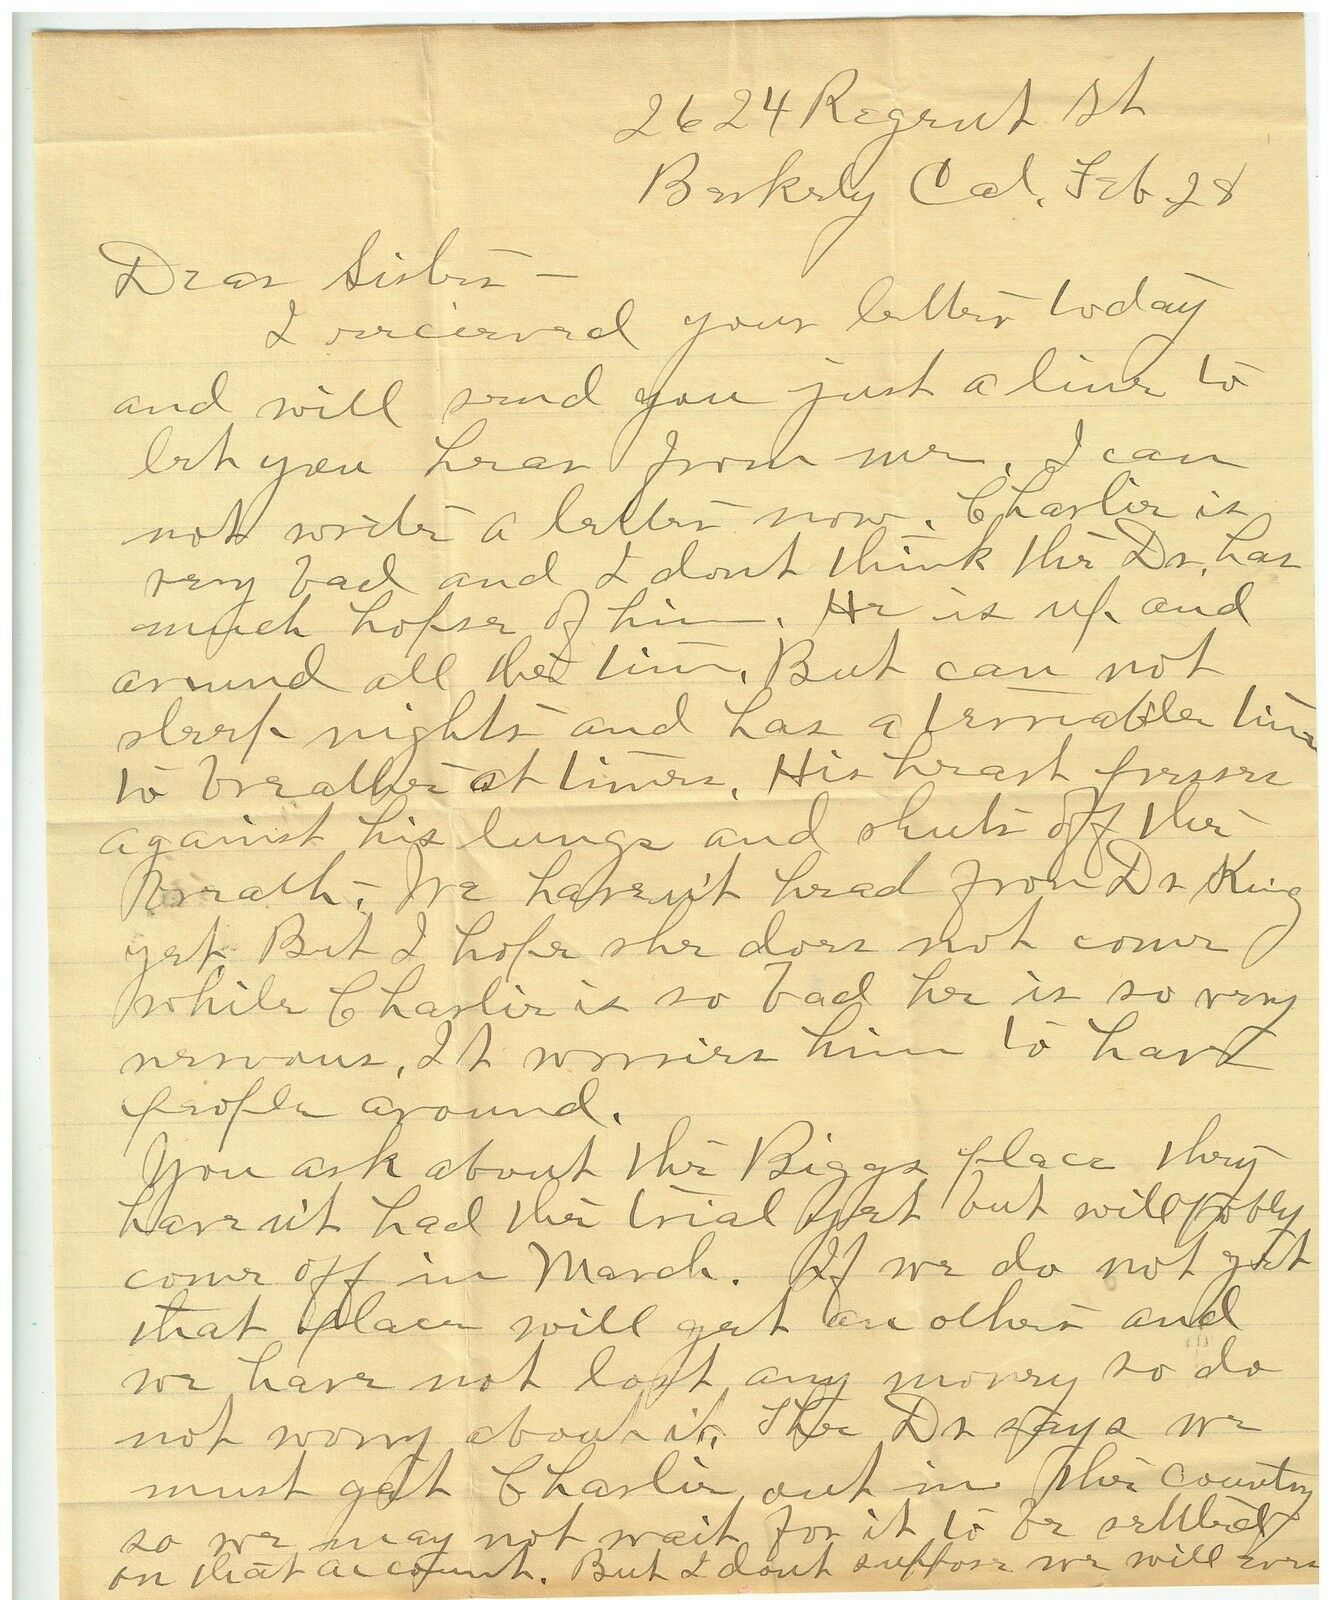 2624 Regent St
Berkely Cal. Feb 28
Dear Sister —
I recieved your letter today
and will send you just a line to
let you hear from me. I can
not write a letter now. Charlie is
very bad and I dont think the Dr. has
much hopse of him. He is up and
around all the time. But can not
sleep nights and has a terriable time
to breathe at times. His heart presses
against his lungs and shuts off the
Breath. We haven't head from Dr King
yet But I hope she does not come
while Charlie is so bad he is so very
nervous. It worries him to have
people around.
You ask about the Biggs place they
haven't had the trial yet but will probly
come off in March. If we do not get
that place will get an other and
we have not lost any money so do
not worry about it. The Dr says we
must get Charlie out in the country
so we may not wait for it to be settled
on that account. But I dont suppose we will ever